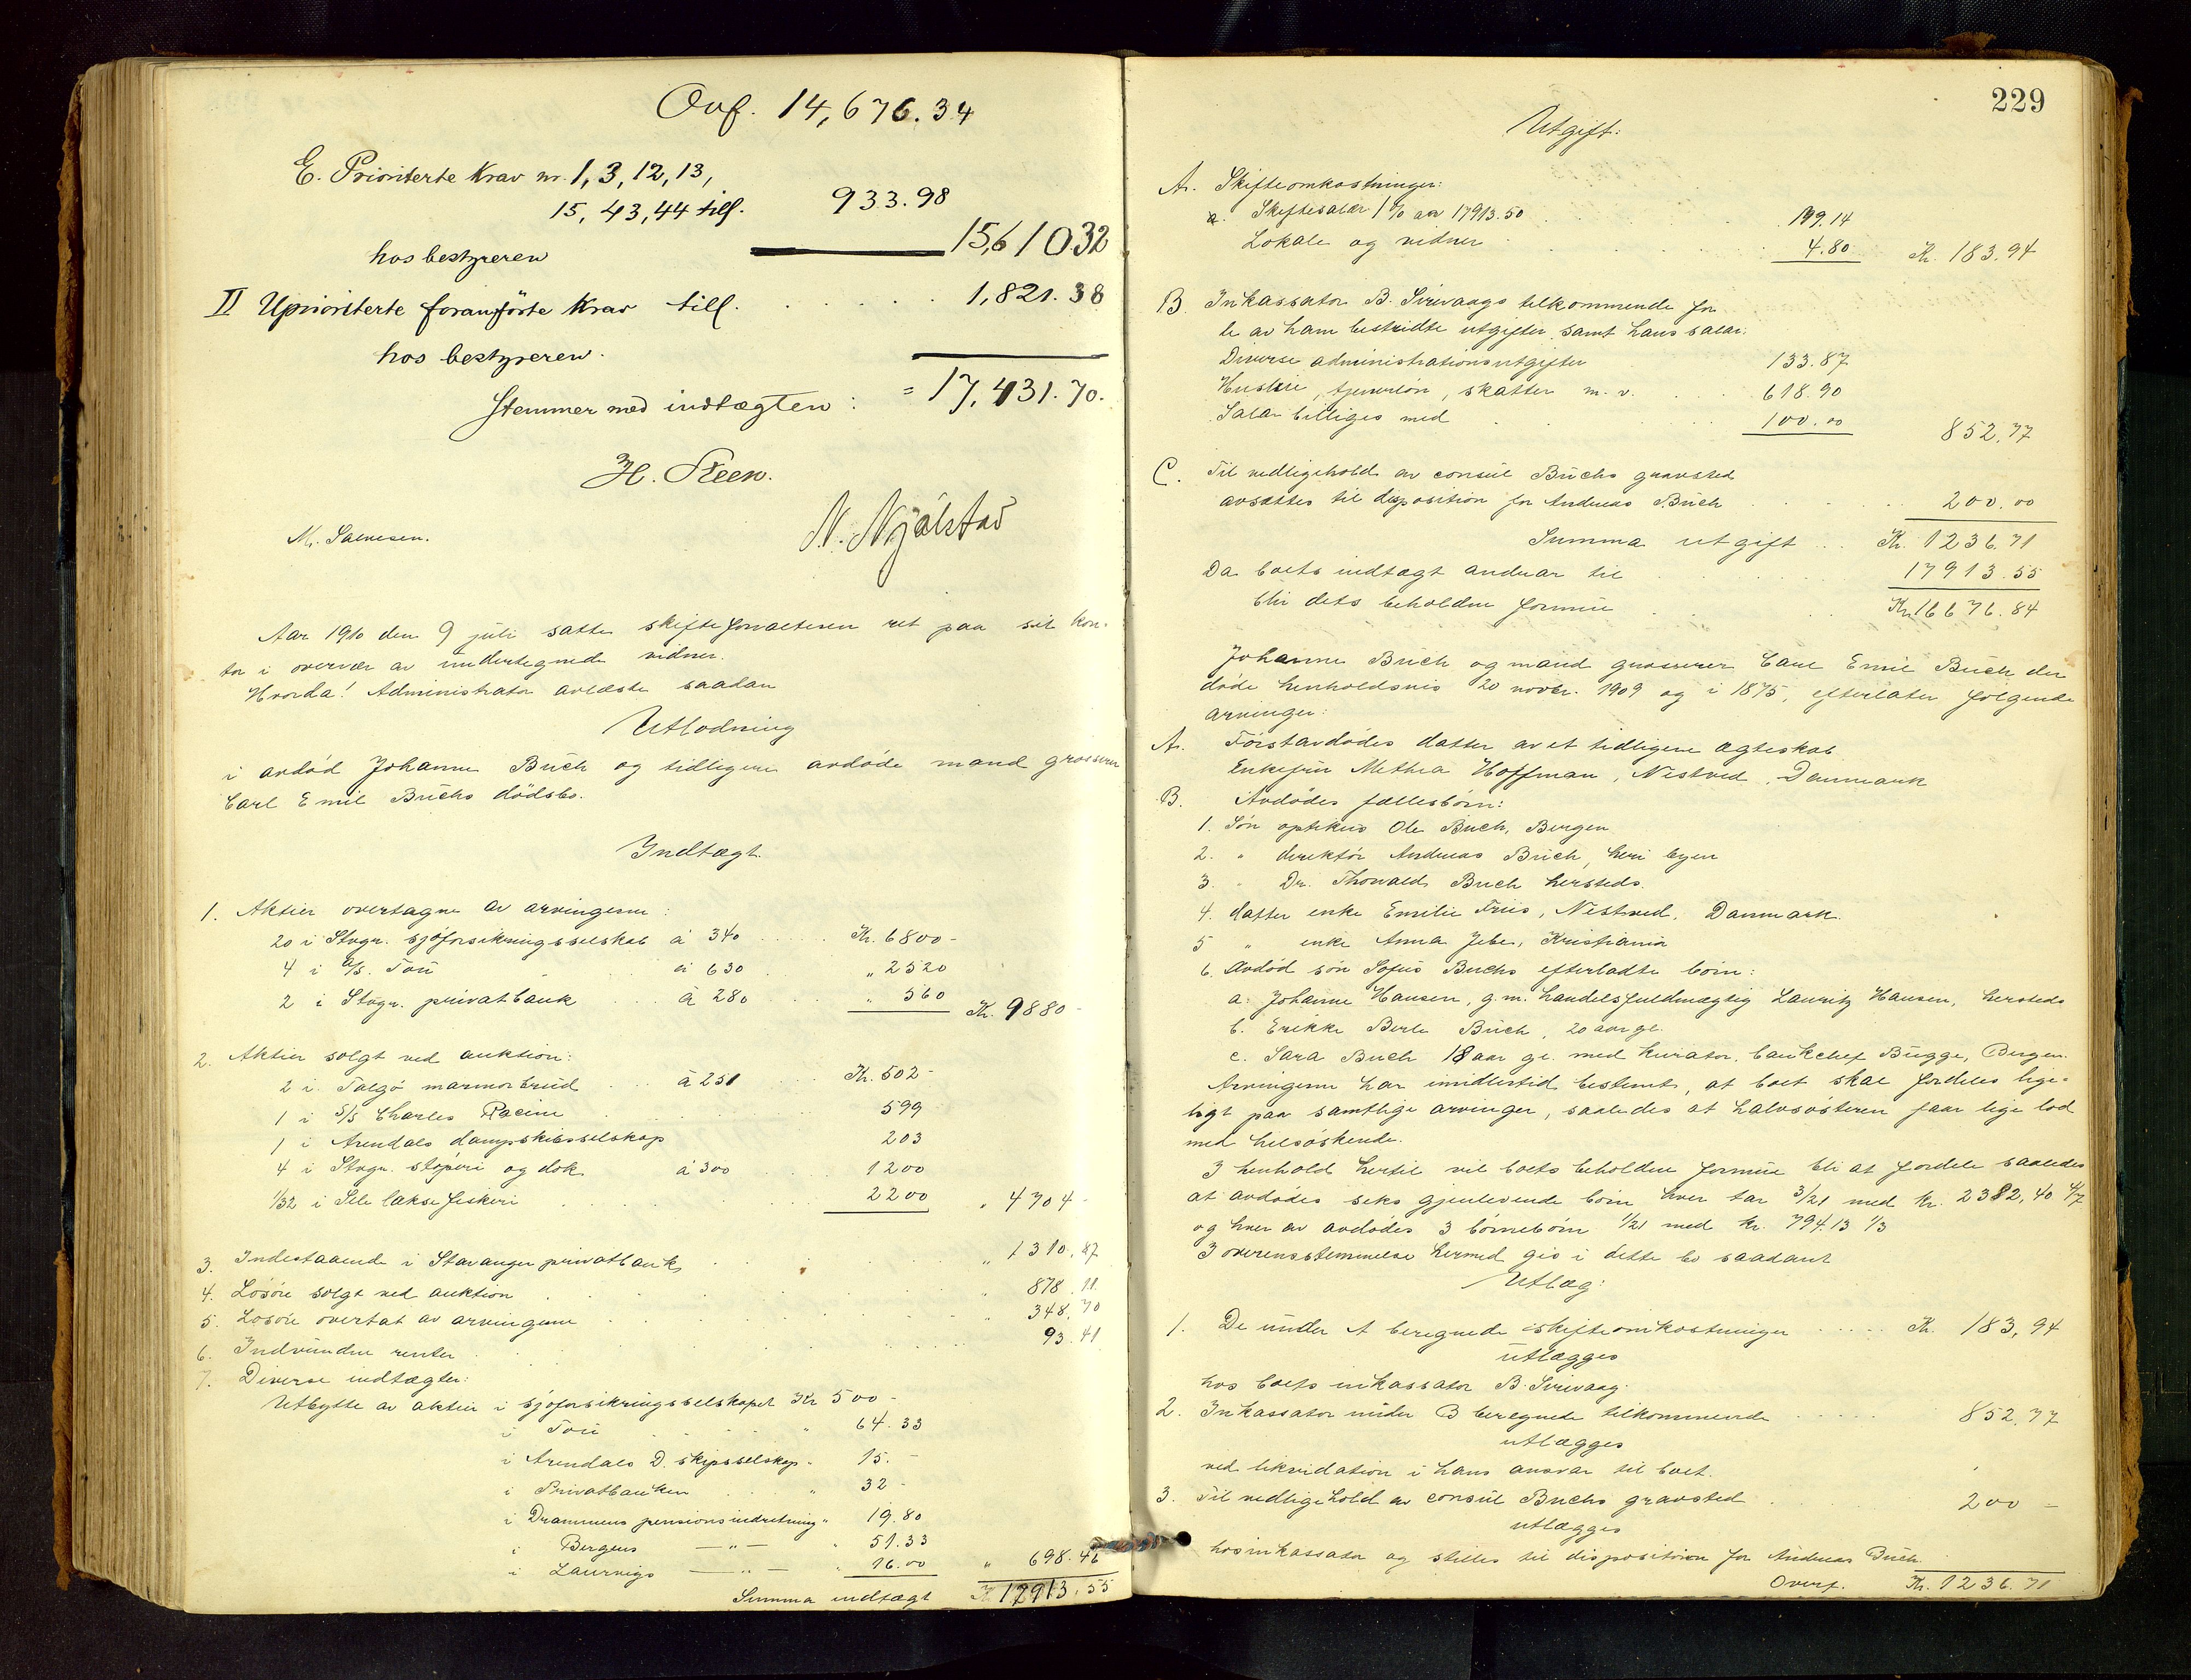 Ovf. 14,676.34
E. Prioriterte Krav nr. 1, 3, 12, 13,
15, 43, 44 till. 933.98
hos bestyreren 15,610.32
II Uprioriterte foranførte Krav till. 1,821.38
hos bestyreren.
Stemmer med indtægten: = 17,431.70.
H. Steen.
M. Salvesen. N. Njålstad
Aar 1910 den 9 juli satte skifteforvalteren ret paa sit kon-
tor i overvær av undertegnede vidner.
Hvorda! Administrator avlæste saadan
Utlodning
i avdød Johanne Buch og tidligere avdøde mand grosserer
Carl Emil Buchs dødsbo.
Indtægt
1. Aktier overtagne av arvingerne:
20 i Stvgr. sjøforsikringsselskab à 340 Kr. 6800 -
4 i A/S. Tou à 630 " 2520
2 i Stvgr. privatbank à 280 " 560 Kr. 9880 -
2. Aktier solgt ved auktion:
2 i Talgø marmorbrud à 251 Kr. 502 -
1 i S/S Charles Racine 599
1 i Arendals dampskibsselskap 203
4 i Stvgr. støperi og dok à 300 1200
1/32 i Sele laksefiskeri 2200 " 4704 -
3. Indestaaende i Stavanger privatbank " 1310.87
4. Løsøre solgt ved auktion " 878.11
5. Løsøre overtat av arvingerne " 348.70
6. Indvundne renter 93.41
7. Diverse indtægter:
Utbytte av aktier i sjøforsikringsselskapet Kr 500 -
i Tou " 64.33
i Arendals D. skipsselskap " 15. -
i Privatbanken " 32 -
i Drammens pensionsindretning " 19.80
i Bergens —"— " 51.33
i Laurvigs —"— " 16.00 " 698.46
Summa indtægt K 17913.55
229
Utgift:
A. Skifteomkostninger:
a. Skiftesalær 1% av 17913.50 179.14
Lokale og vidner 4.80 Kr. 183.94
B. Inkassator B. Sirevaags tilkommende for
de av ham bestridte utgifter samt hans salær:
Diverse administrationsutgifter 133.87
Husleie, tjenerløn, skatter m. v. 618.90
Salær billiges med 100.00 852.77
C. Til vedligehold av consul Buchs gravsted
avsættes til disposition for Andreas Buch 200.00
Summa utgift Kr. 1236.71
Da boets indtægt andrar til 17913.55
blir dets beholdne formue Kr. 16676.84
Johanne Buch og mand grosserer Carl Emil Buch der
døde henholdsvis 20 novbr. 1909 og i 1875, efterlater følgende
arvinger:
A. Førstavdødes datter av et tidligere ægteskab
Enkefru Methea Hoffman, Nestved, Danmark
B. Avdødes fællesbørn:
1. Søn optikus Ole Buch, Bergen
2. " direktør Andreas Buch, her i byen
3. " Dr. Thorvald Buch hersteds.
4. datter enke Emilie Friis, Nestved, Danmark.
5 " enke Anna Jebe, Kristiania
6. Avdød søn Sofus Buchs efterladte børn:
a. Johanne Hansen, g.m. handelsfuldmægtig Lauritz Hansen, hersteds
b. Erikke Berle Buch, 20 aar gl.
c. Sara Buch 18 aar gl. med kurator, bankchef Bugge, Bergen.
Arvingerne har imidlertid bestemt, at boet skal fordeles lige-
ligt paa samtlige arvinger, saaledes at halvsøsteren faar lige lod
med helsøskende.
I henhold hertil vil boets beholdne formue bli at fordele saaledes
at avdødes seks gjenlevende børn hver tar 3/21 med kr. 2382,40 4/7
og hver av avdødes 3 børnebørn 1/21 med kr. 794.13 1/3
I overensstemmelse hermed gis i dette bo saadant
Utlæg:
1. De under A beregnede skifteomkostninger Kr. 183,94
utlægges
hos boets inkassator B. Sirevaag.
2. Inkassator under B beregnede tilkommende 852.77
utlægges
ved likvidation i hans ansvar til boet.
3. Til vedligehold av consul Buchs gravsted 200 -
utlægges
hos inkassator og stilles til disposition for Andreas Buch
Overf. Kr. 1236.71